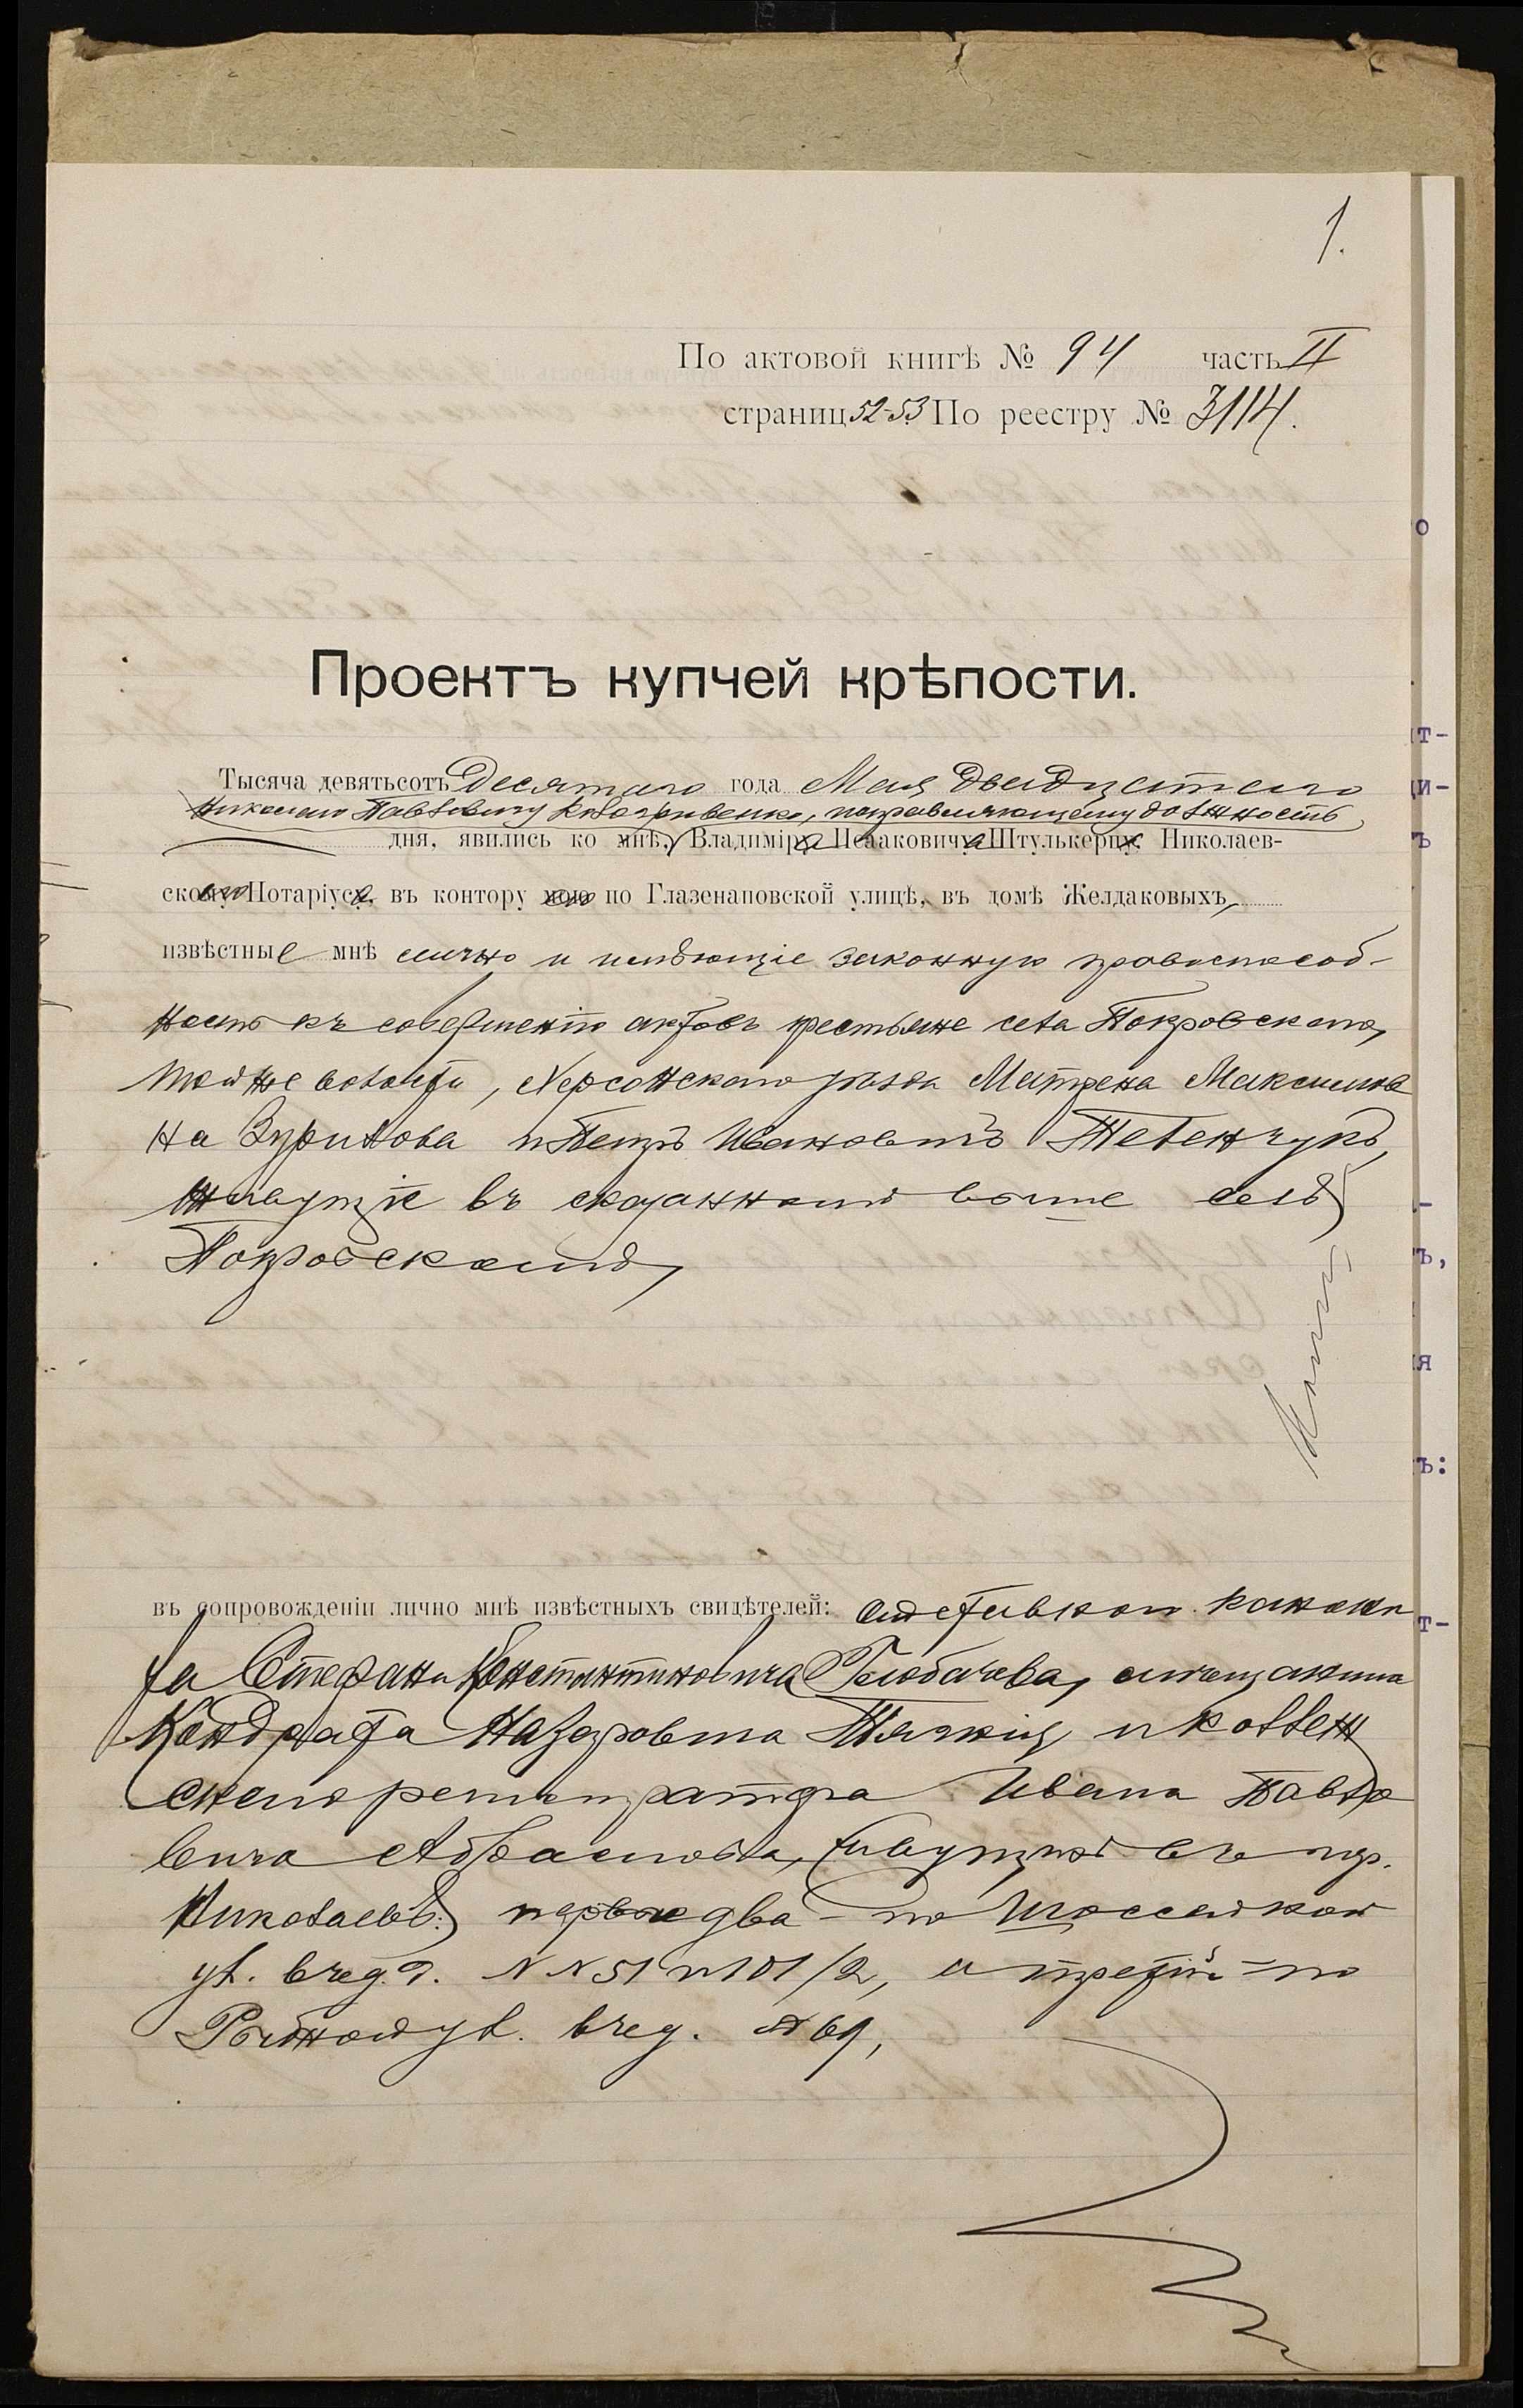 1.
По актовой книгѣ № 94 часть II
страниц 52-53 По реестру № 3114.
Проектъ купчей крѣпости.
Тысяча девятьсотъ Десятаго года Мая двадцатаго
Николаю Павловичу исправляющему должность
дня, явились ко мнѣ, Владиміра Исааковича Штулькерца Николаев-
скаго Нотаріуса, въ контору его по Глазенаповской улицѣ, въ домѣ Желдаковыхъ,
извѣстные мнѣ лично и имѣющіе законную правоспособ-
ность къ совершенію актовъ крестьяне села Покровскаго,
волости, Херсонскаго уѣзда Матрена Максимов
на Зурилова и Петръ Ивановичъ Теленчукъ,
живущіе въ сказанномъ выше селѣ
Покровскомъ,
въ сопровожденіи лично мнѣ извѣстныхъ свидѣтелей: отставного канони
ра Стефана Константиновича Голобачева, мѣщанина
Кондрата Назаровича и коллеж
скаго регистратора Ивана Павло
вича Абрамова, живущихъ въ гор.
Николаевѣ: первые два - по
ул. въ соб. д. N N 51 и 101/2, а третій - по
Рыбной ул. въ соб. № 69,
о
т-
и-
ъ
-
ъ,
я
ъ:
т-